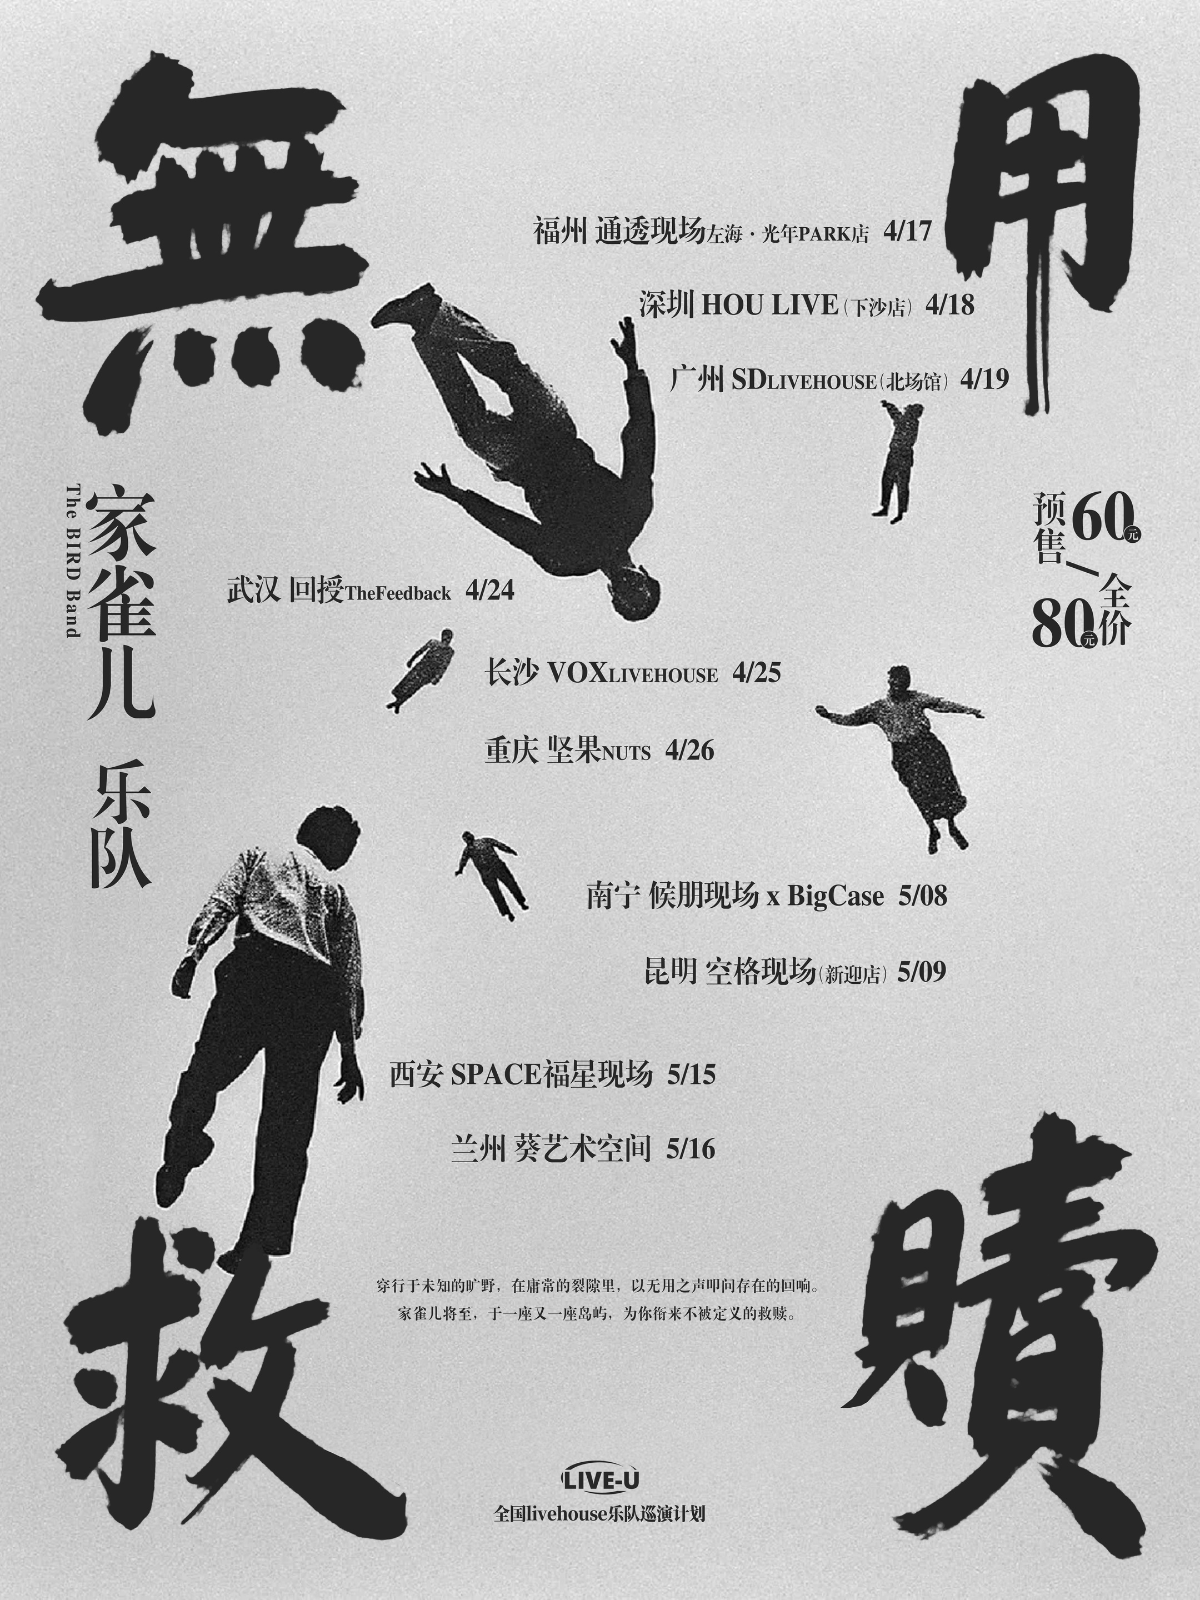 無用
福州 通透现场左海·光年PARK店 4/17
深圳 HOU LIVE(下沙店) 4/18
广州 SDLIVEHOUSE(北场馆) 4/19
家雀儿 乐队
The BIRD Band
预售 60元
全价 80元
武汉 回授TheFeedback 4/24
长沙 VOXLIVEHOUSE 4/25
重庆 坚果NUTS 4/26
南宁 候朋现场 x BigCase 5/08
昆明 空格现场(新迎店) 5/09
西安 SPACE福星现场 5/15
兰州 葵艺术空间 5/16
救贖
穿行于未知的旷野，在庸常的裂隙里，以无用之声叩问存在的回响。
家雀儿将至，于一座又一座岛屿，为你衔来不被定义的救赎。
LIVE-U
全国livehouse乐队巡演计划